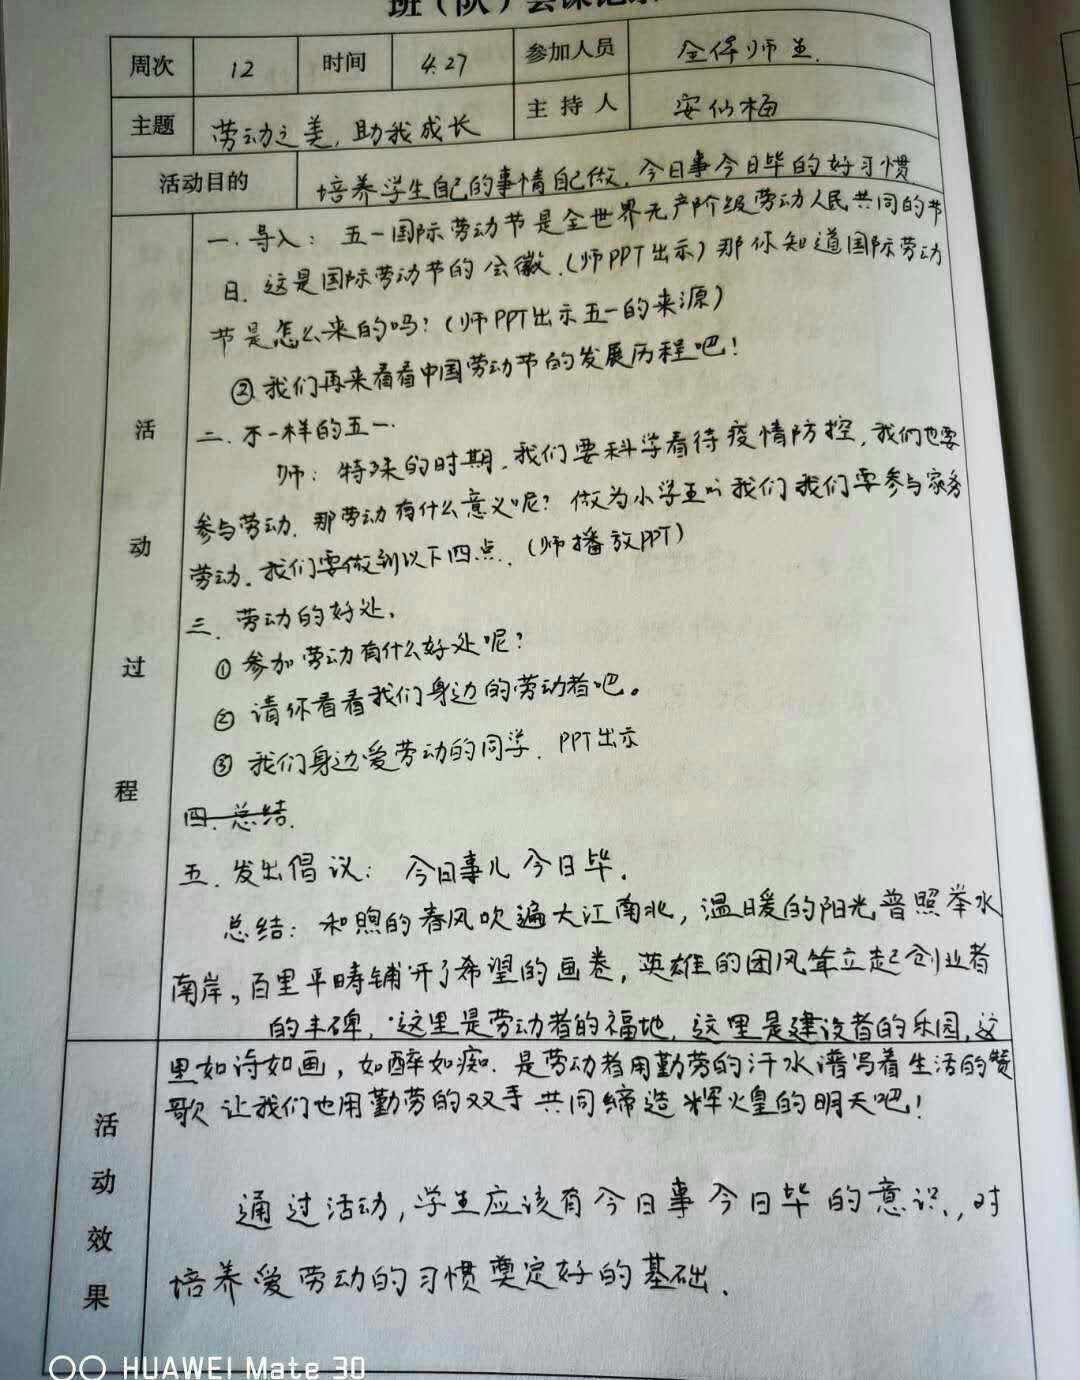 班（队）会课记录
周次 12 时间 4.27 参加人员 全体师生.
主题 劳动之美,助我成长 主持人 安仙梅
活动目的 培养学生自己的事情自己做.今日事今日毕的好习惯
活动过程
一.导入：五一国际劳动节是全世界无产阶级劳动人民共同的节
日.这是国际劳动节的会徽.(师PPT出示)那你知道国际劳动
节是怎么来的吗?(师PPT出示五一的来源)
②.我们再来看看中国劳动节的发展历程吧!
二.不一样的五一.
师：特殊的时期.我们要科学看待疫情防控,我们也要
参与劳动.那劳动有什么意义呢?做为小学生的我们我们要参与家务
劳动.我们要做到以下四点.(师播放PPT)
三.劳动的好处.
①参加劳动有什么好处呢?
②请你看看我们身边的劳动者吧。
③我们身边爱劳动的同学.PPT出示
四.总结.
五.发出倡议：今日事儿今日毕.
总结：和煦的春风吹遍大江南北,温暖的阳光普照举水
南岸,百里平畴铺开了希望的画卷,英雄的团风耸立起创业者
的丰碑,这里是劳动者的福地,这里是建设者的乐园,这
里如诗如画,如醉如痴.是劳动者用勤劳的汗水谱写着生活的赞
歌 让我们也用勤劳的双手共同缔造辉煌的明天吧!
活动效果
通过活动,学生应该有今日事今日毕的意识,对
培养爱劳动的习惯奠定好的基础.
HUAWEI Mate 30